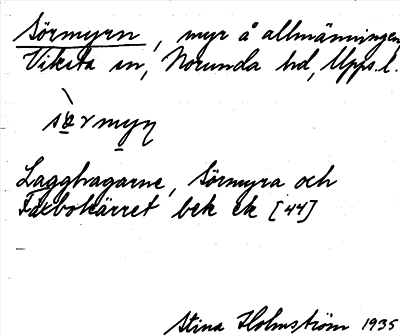 Sörmyrn, myr å allmänningen
Viksta sn, Norunda hd, Upps. l.
Lagghagarne, Sörmyra och
Fäbokärret bek ek [44]
Stina Holmström 1935